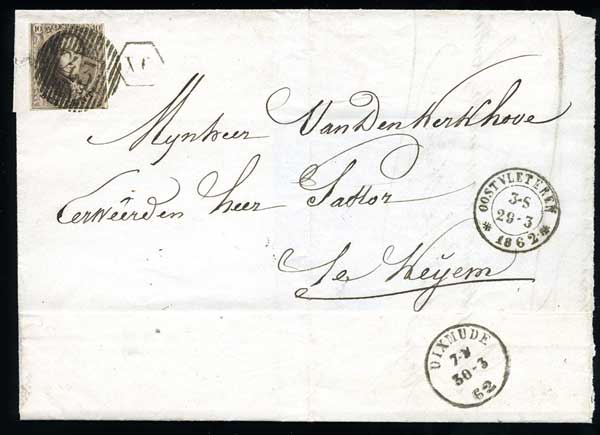 10 10
Mynheer VanDenKerkhove
Eerweerden heer Pastor
te Keyem
OOSTVLETEREN
3-S
29-3
1862
DIXMUDE
7-M
30-3
62